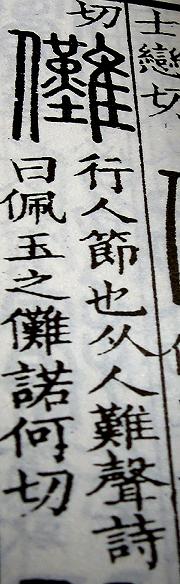 士戀切
切
儺
行人節也从人難聲詩
曰佩玉之儺諾何切